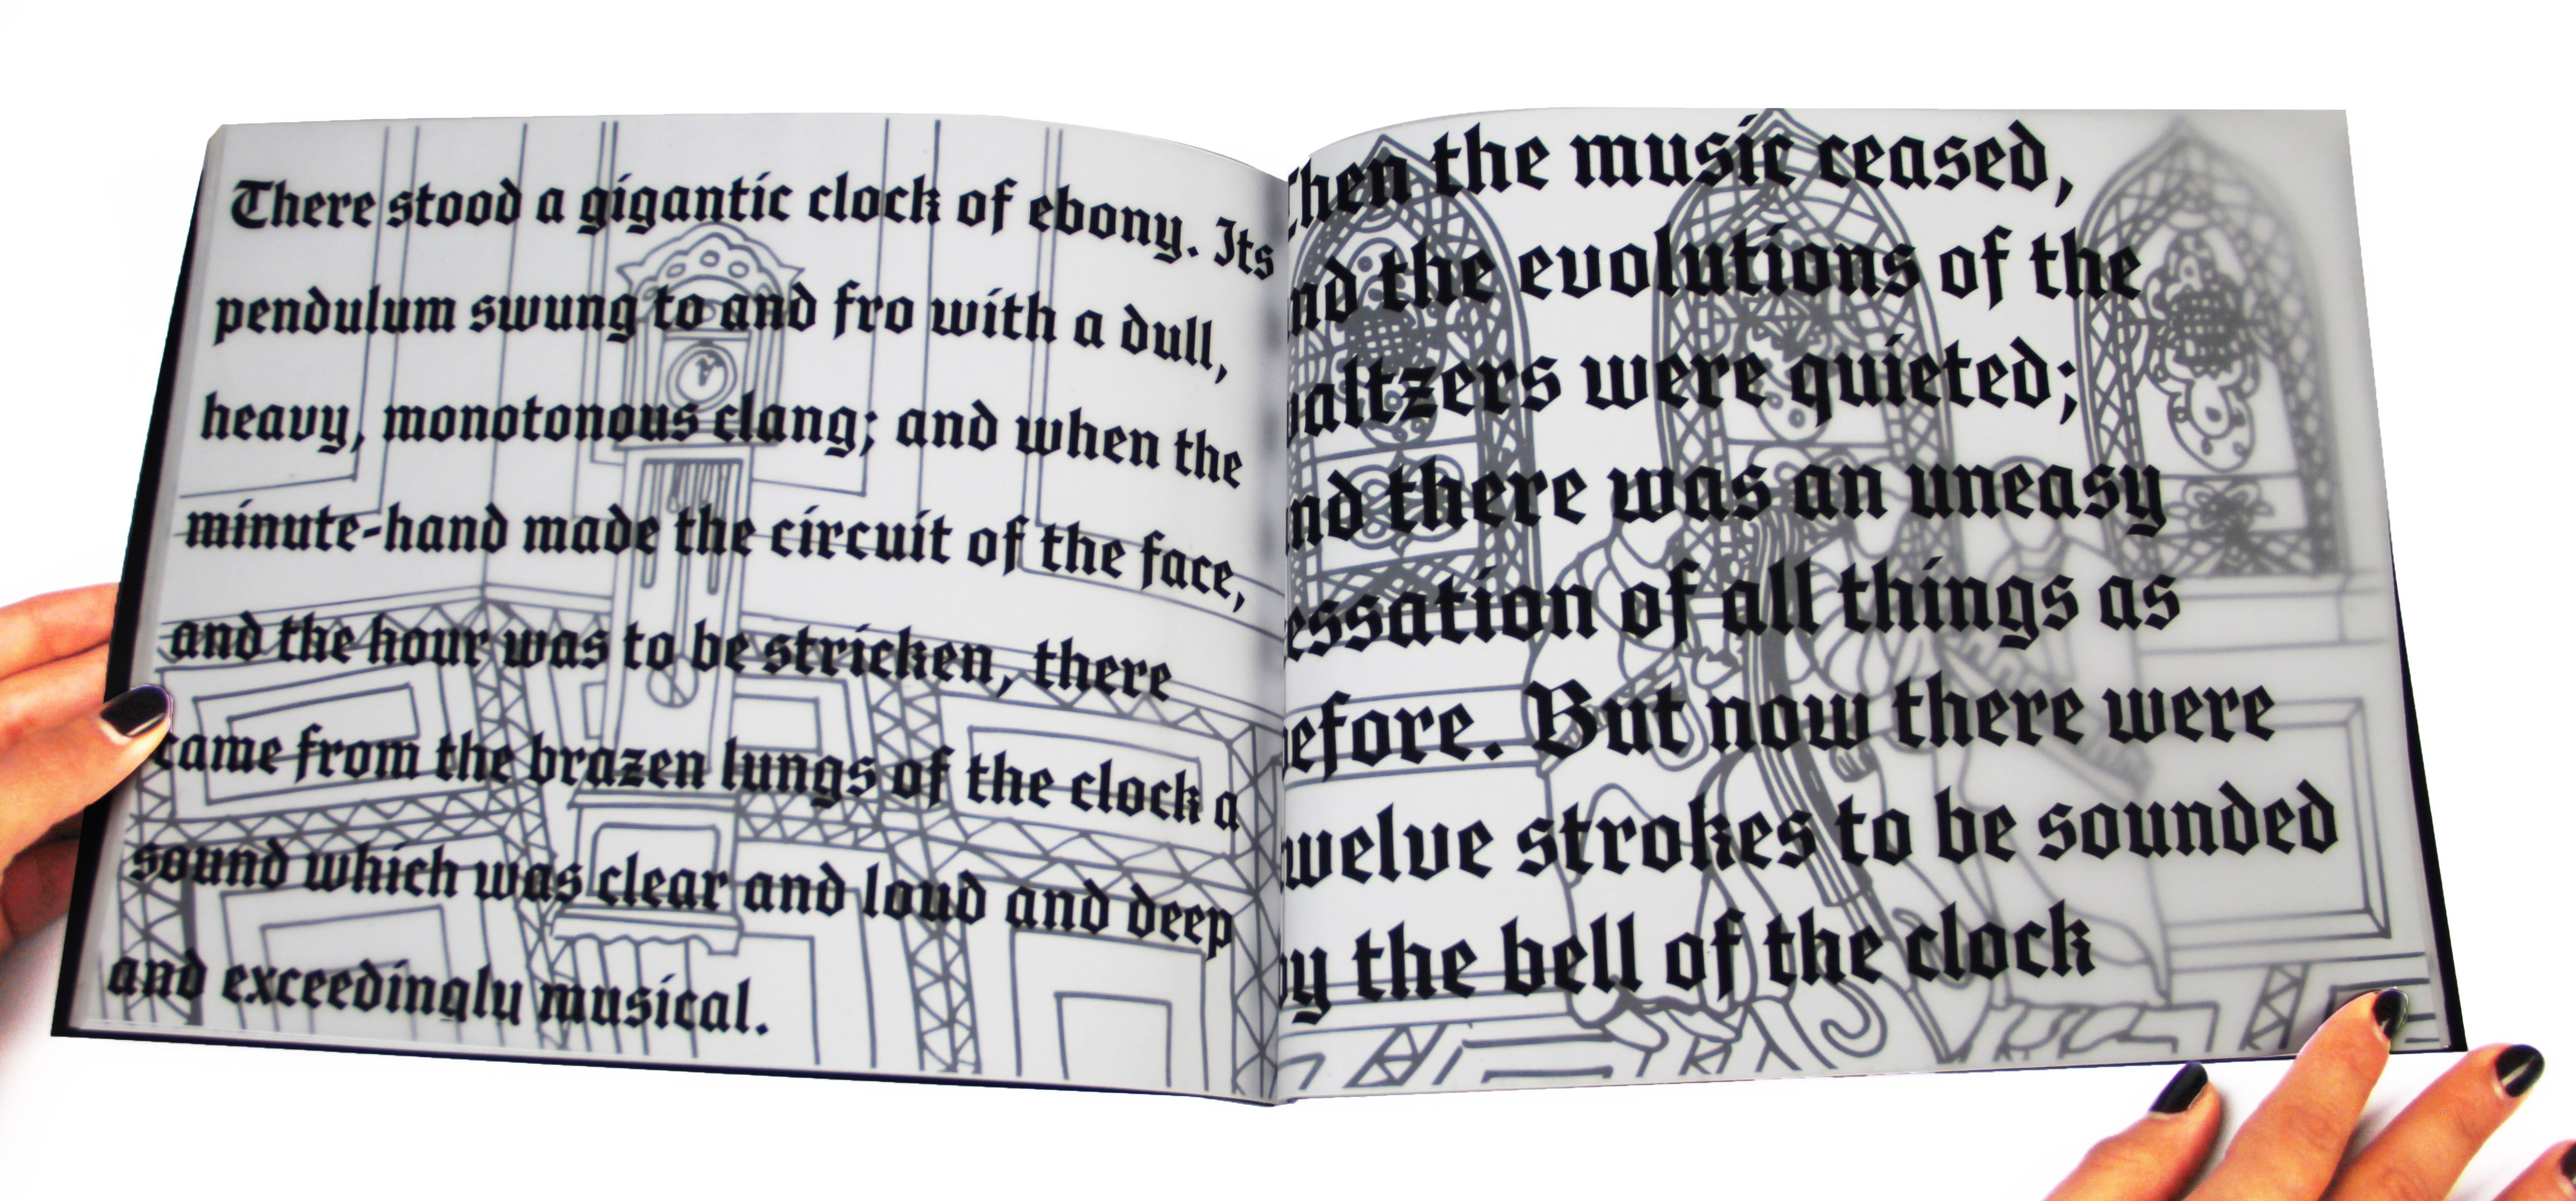 There stood a gigantic clock of ebony. Its
pendulum swung to and fro with a dull,
heavy, monotonous clang; and when the
minute-hand made the circuit of the face,
and the hour was to be stricken, there
came from the brazen lungs of the clock a
sound which was clear and loud and deep
and exceedingly musical.
Then the music ceased,
and the evolutions of the
waltzers were quieted;
and there was an uneasy
cessation of all things as
before. But now there were
twelve strokes to be sounded
by the bell of the clock